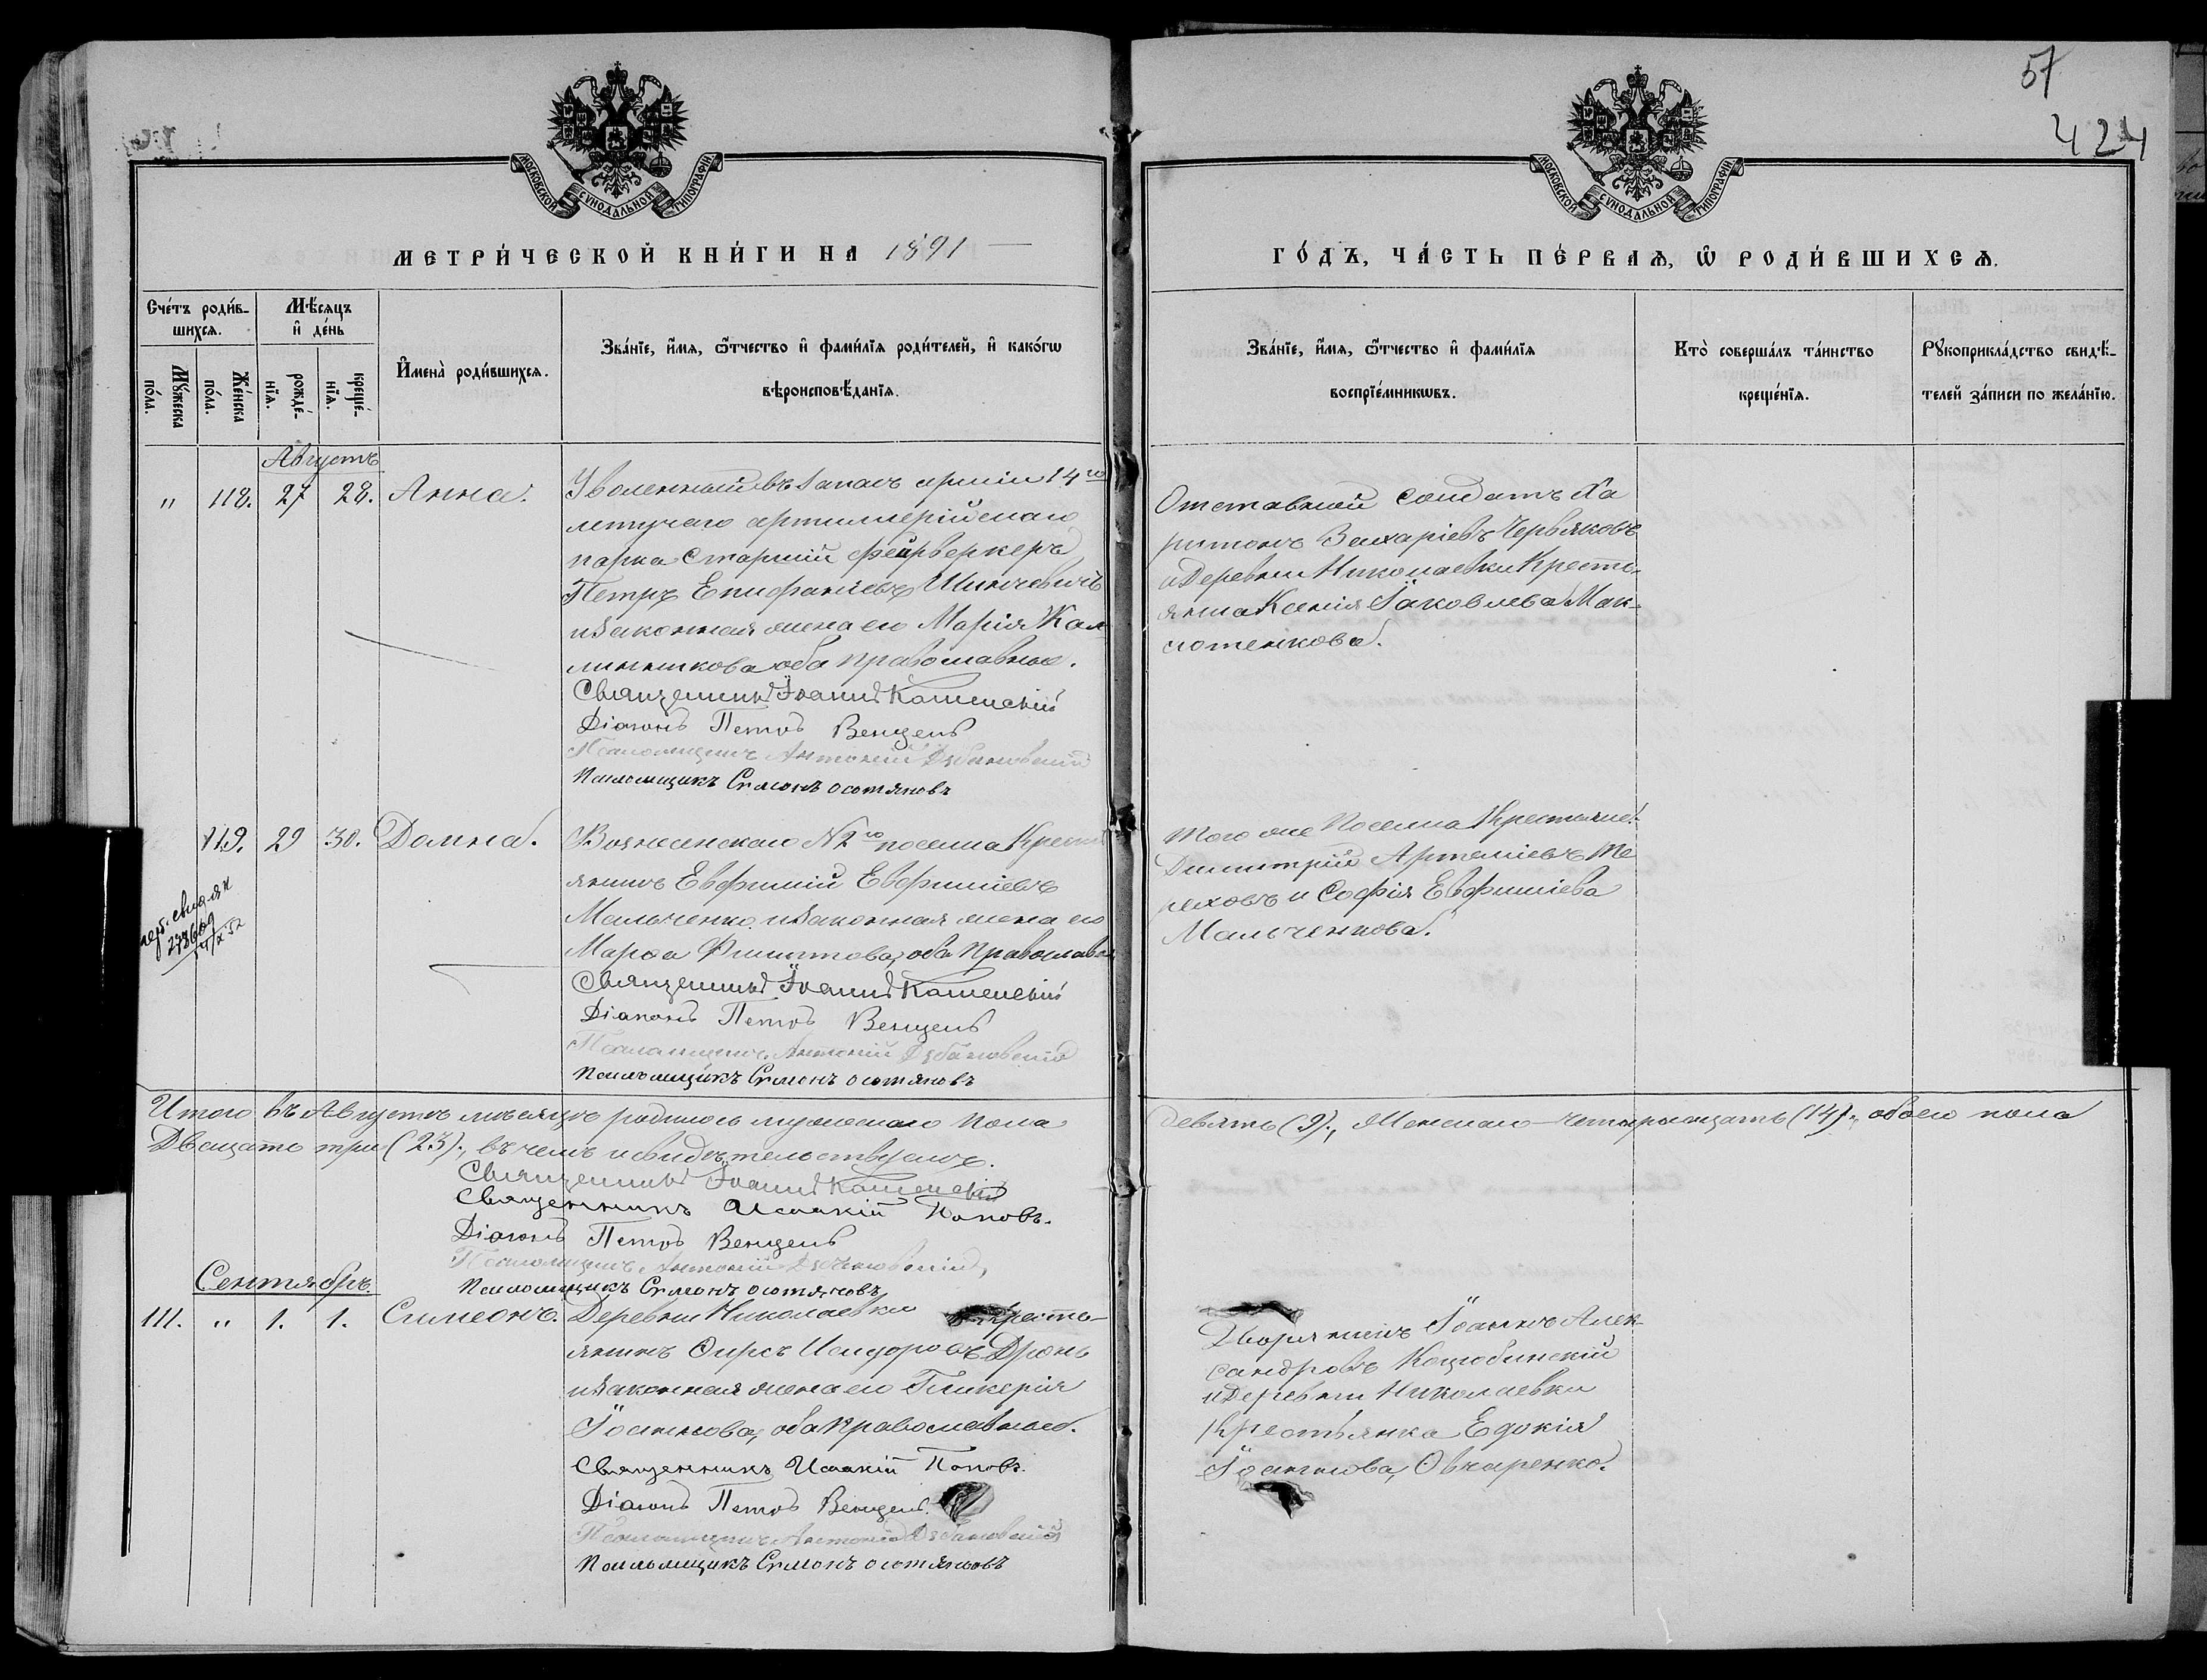 57
424
МОСКОВСКОЙ СѴНОДАЛЬНОЙ ТИПОГРАФІИ
МОСКОВСКОЙ СѴНОДАЛЬНОЙ ТИПОГРАФІИ
МЕТРИ́ЧЕСКОЙ КНИ́ГИ НА 1891
ГО́ДЪ, ЧА́СТЬ ПЕ́РВАѦ, Ѽ РОДИ́ВШИХСѦ.
Сче́тъ роди́в-
шихсѧ.
Мꙋ́жеска
по́ла.
Же́нска
по́ла.
Мѣ́сѧцъ
и҆ де́нь
рожде́-
нїѧ.
креще́-
нїѧ.
И҆мена̀ роди́вшихсѧ.
Зва́нїе, и҆́мѧ, ѻ҆́тчество и҆ фами́лїѧ роди́телей, и҆ како́гѡ
вѣроисповѣ́данїѧ.
Зва́нїе, и҆́мѧ, ѻ҆́тчество и҆ фами́лїѧ
воспрїе́мникѡвъ.
Кто̀ соверша́лъ та́инство
креще́нїѧ.
Рꙋкоприкла́дство свидѣ́-
телей за́писи по жела́нїю.
Августъ
" 118. 27 28. Анна.
Уволенный въ запасъ арміи 14го
летучаго артиллерійскаго
парка старшій фейрверкеръ
Петръ Епифаніевъ
и законная жена его Марія Кал
линникова оба православные.
Священникъ Іоаннъ Каменскій
Діаконъ Петръ Венцель
Псаломщикъ Антоній
Псаломщикъ Симонъ Осотяновъ
Отставной солдатъ Ха
ритонъ Захаріевъ Червяковъ
и деревни Николаевки Кресть-
янка Ксенія Іаковлева Мак-
потенкова.
119. 29 30. Домна.
Вознесенскаго №2го поселка Кресть
янинъ Евфимій Евфиміевъ
Мальченко и законная жена его
Марѳа Филиптова, оба Православн
Священникъ Іоаннъ Каменскій
Діаконъ Петръ Венцель
Псаломщикъ Антоній
Псаломщикъ Симонъ Осотяновъ
Того же Поселка Крестьяне:
Димитрій Артеміевъ Ме
леховъ и Софія Евфиміева
Мальченкова.
27860
Итого въ Августѣ мѣсяцѣ родилось мужескаго пола
девять (9), Женскаго – четырнадцать (14), обоего пола
Двадцать три (23), въ чемъ и свидѣтельствуемъ.
Священникъ Іоаннъ Каменскій
Священникъ Исаакій Поповъ.
Діаконъ Петръ Венцель
Псаломщикъ Антоній
Псаломщикъ Симонъ Осотяновъ
Сентябрь.
111. " 1. 1. Симеонъ.
Деревни Николаевки Кресть-
янинъ Ѳирсъ Исидоровъ Дронь
и законная жена его Гликерія
Іоаннова, оба Православные.
Священникъ Исаакій Поповъ.
Діаконъ Петръ Венцель.
Псаломщикъ Антоній
Псаломщикъ Симонъ Осотяновъ
Дворянинъ Іоаннъ Алек-
сандровъ Коцюбинскій
и деревни Николаевки
Крестьянка Едокія
Іоаннова, Овчаренко.